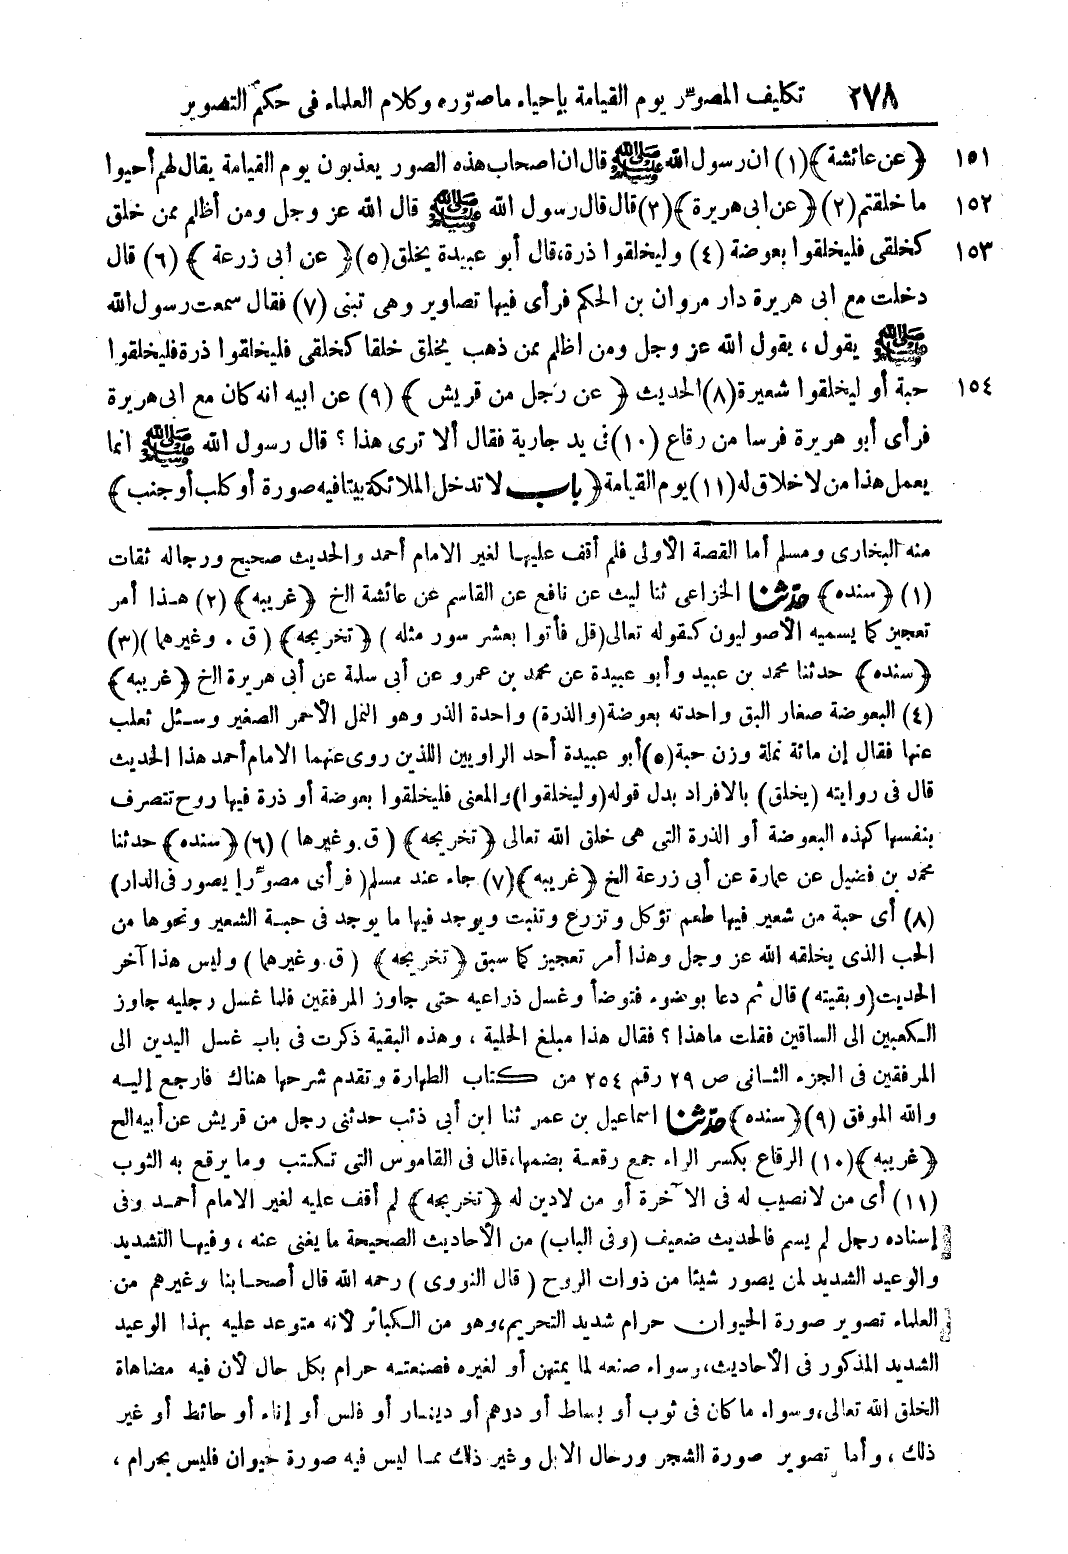 ٢٧٨ تكليف المصوّر يوم القيامة بإحياء ما صوّره وكلام العلماء فى حكم التصوير
١٥١ ﴿عن عائشة﴾(١) ان رسول الله ﷺ قال ان اصحاب هذه الصور يعذبون يوم القيامة يقال لهم أحيوا
١٥٢ ما خلقتم (٢) ﴿عن ابى هريرة﴾(٣) قال قال رسول الله ﷺ قال الله عز وجل ومن أظلم ممن خلق
١٥٣ كخلقى فليخلقوا بعوضة (٤) وليخلقوا ذرة، قال أبو عبيدة يخلق (٥) ﴿عن ابى زرعة﴾ (٦) قال
دخلت مع ابى هريرة دار مروان بن الحكم فرأى فيها تصاوير وهى تبنى (٧) فقال سمعت رسول الله
ﷺ يقول، يقول الله عز وجل ومن اظلم ممن ذهب يخلق خلقا كخلقى فليخلقوا ذرة فليخلقوا
١٥٤ حبة أو ليخلقوا شعيرة (٨) الحديث ﴿عن رجل من قريش﴾ (٩) عن ابيه انه كان مع ابى هريرة
فرأى أبو هريرة فرسا من رقاع (١٠) فى يد جارية فقال ألا ترى هذا ؟ قال رسول الله ﷺ انما
يعمل هذا من لاخلاق له (١١) يوم القيامة ﴿باب لا تدخل الملائكة بيتا فيه صورة أو كلب أو جنب﴾
منه البخارى ومسلم أما القصة الأولى فلم أقف عليها لغير الامام أحمد والحديث صحيح ورجاله ثقات
(١) ﴿سنده﴾ حدّثنا الخزاعى ثنا ليث عن نافع عن القاسم عن عائشة الخ ﴿غريبه﴾ (٢) هذا أمر
تعجيز كما يسميه الأصوليون كقوله تعالى (قل فأتوا بعشر سور مثله) ﴿تخريجه﴾ (ق . وغيرهما) (٣)
﴿سنده﴾ حدثنا محمد بن عبيد وأبو عبيدة عن محمد بن عمرو عن أبى سلمة عن أبى هريرة الخ ﴿غريبه﴾
(٤) البعوضة صغار البق واحدته بعوضة (والذرة) واحدة الذر وهو النمل الأحمر الصغير وسئل ثعلب
عنها فقال إن مائة نملة وزن حبة (٥) أبو عبيدة أحد الراويين اللذين روى عنهما الامام أحمد هذا الحديث
قال فى روايته (يخلق) بالافراد بدل قوله (وليخلقوا) والمعنى فليخلقوا بعوضة أو ذرة فيها روح تتصرف
بنفسها كهذه البعوضة أو الذرة التى هى خلق الله تعالى ﴿تخريجه﴾ (ق. وغيرهما) (٦) ﴿سنده﴾ حدثنا
محمد بن فضيل عن عمارة عن أبى زرعة الخ ﴿غريبه﴾ (٧) جاء عند مسلم (فرأى مصوّرا يصور فى الدار)
(٨) أى حبة من شعير فيها طعم تؤكل وتزرع وتنبت ويوجد فيها ما يوجد فى حبة الشعير ونحوها من
الحب الذى يخلقه الله عز وجل وهذا أمر تعجيز كما سبق ﴿تخريجه﴾ (ق. وغيرهما) وليس هذا آخر
الحديث (وبقيته) قال ثم دعا بوضوء فتوضأ وغسل ذراعيه حتى جاوز المرفقين فلما غسل رجليه جاوز
الكعبين الى الساقين فقلت ماهذا ؟ فقال هذا مبلغ الحلية ، وهذه البقية ذكرت فى باب غسل اليدين الى
المرفقين فى الجزء الثانى ص ٢٩ رقم ٢٥٤ من كتاب الطهارة وتقدم شرحها هناك فارجع إليه
والله الموفق (٩) ﴿سنده﴾ حدّثنا اسماعيل بن عمر ثنا ابن أبى ذئب حدثنى رجل من قريش عن أبيه الخ
﴿غريبه﴾ (١٠) الرقاع بكسر الراء جمع رقعة بضمها، قال فى القاموس التى تكتب وما يرقع به الثوب
(١١) أى من لانصيب له فى الآخرة أو من لادين له ﴿تخريجه﴾ لم أقف عليه لغير الامام أحمد وفى
إسناده رجل لم يسم فالحديث ضعيف (وفى الباب) من الأحاديث الصحيحة ما يغنى عنه ، وفيها التشديد
والوعيد الشديد لمن يصور شيئا من ذوات الروح (قال النووى) رحمه الله قال أصحابنا وغيرهم من
العلماء تصوير صورة الحيوان حرام شديد التحريم، وهو من الكبائر لأنه متوعد عليه بهذا الوعيد
الشديد المذكور فى الأحاديث، وسواء صنعه لما يمتهن أو لغيره فصنعته حرام بكل حال لأن فيه مضاهاة
الخلق الله تعالى، وسواء ما كان فى ثوب أو بساط أو درهم أو دينار أو فلس أو إناء أو حائط أو غير
ذلك ، وأما تصوير صورة الشجر ورحال الابل وغير ذلك مما ليس فيه صورة حيوان فليس بحرام ،